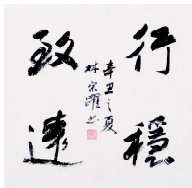 行穩
致遠
辛丑之夏
林宗躍书